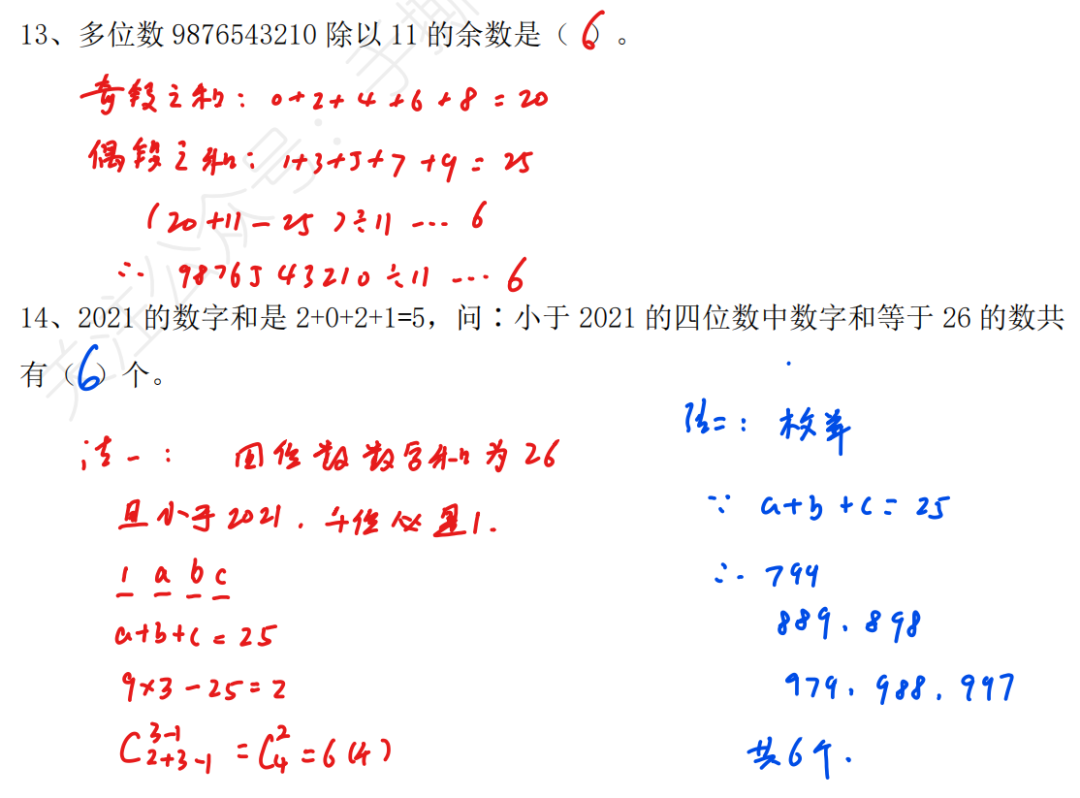 13、多位数 9876543210 除以 11 的余数是（ 6 ）。
奇段之和：0+2+4+6+8=20
偶段之和：1+3+5+7+9=25
(20+11-25)÷11 … 6
∴ 9876543210÷11 … 6
14、2021 的数字和是 2+0+2+1=5，问：小于 2021 的四位数中数字和等于 26 的数共
有（ 6 ）个。
法一：四位数数字和为26
且小于2021．千位必是1．
1 a b c
a+b+c=25
9×3-25=2
C_{2+3-1}^{3-1}=C_4^2=6(个)
法二：枚举
∵ a+b+c=25
∴ 799
889、898
979、988、997
共6个．
关注公众号：